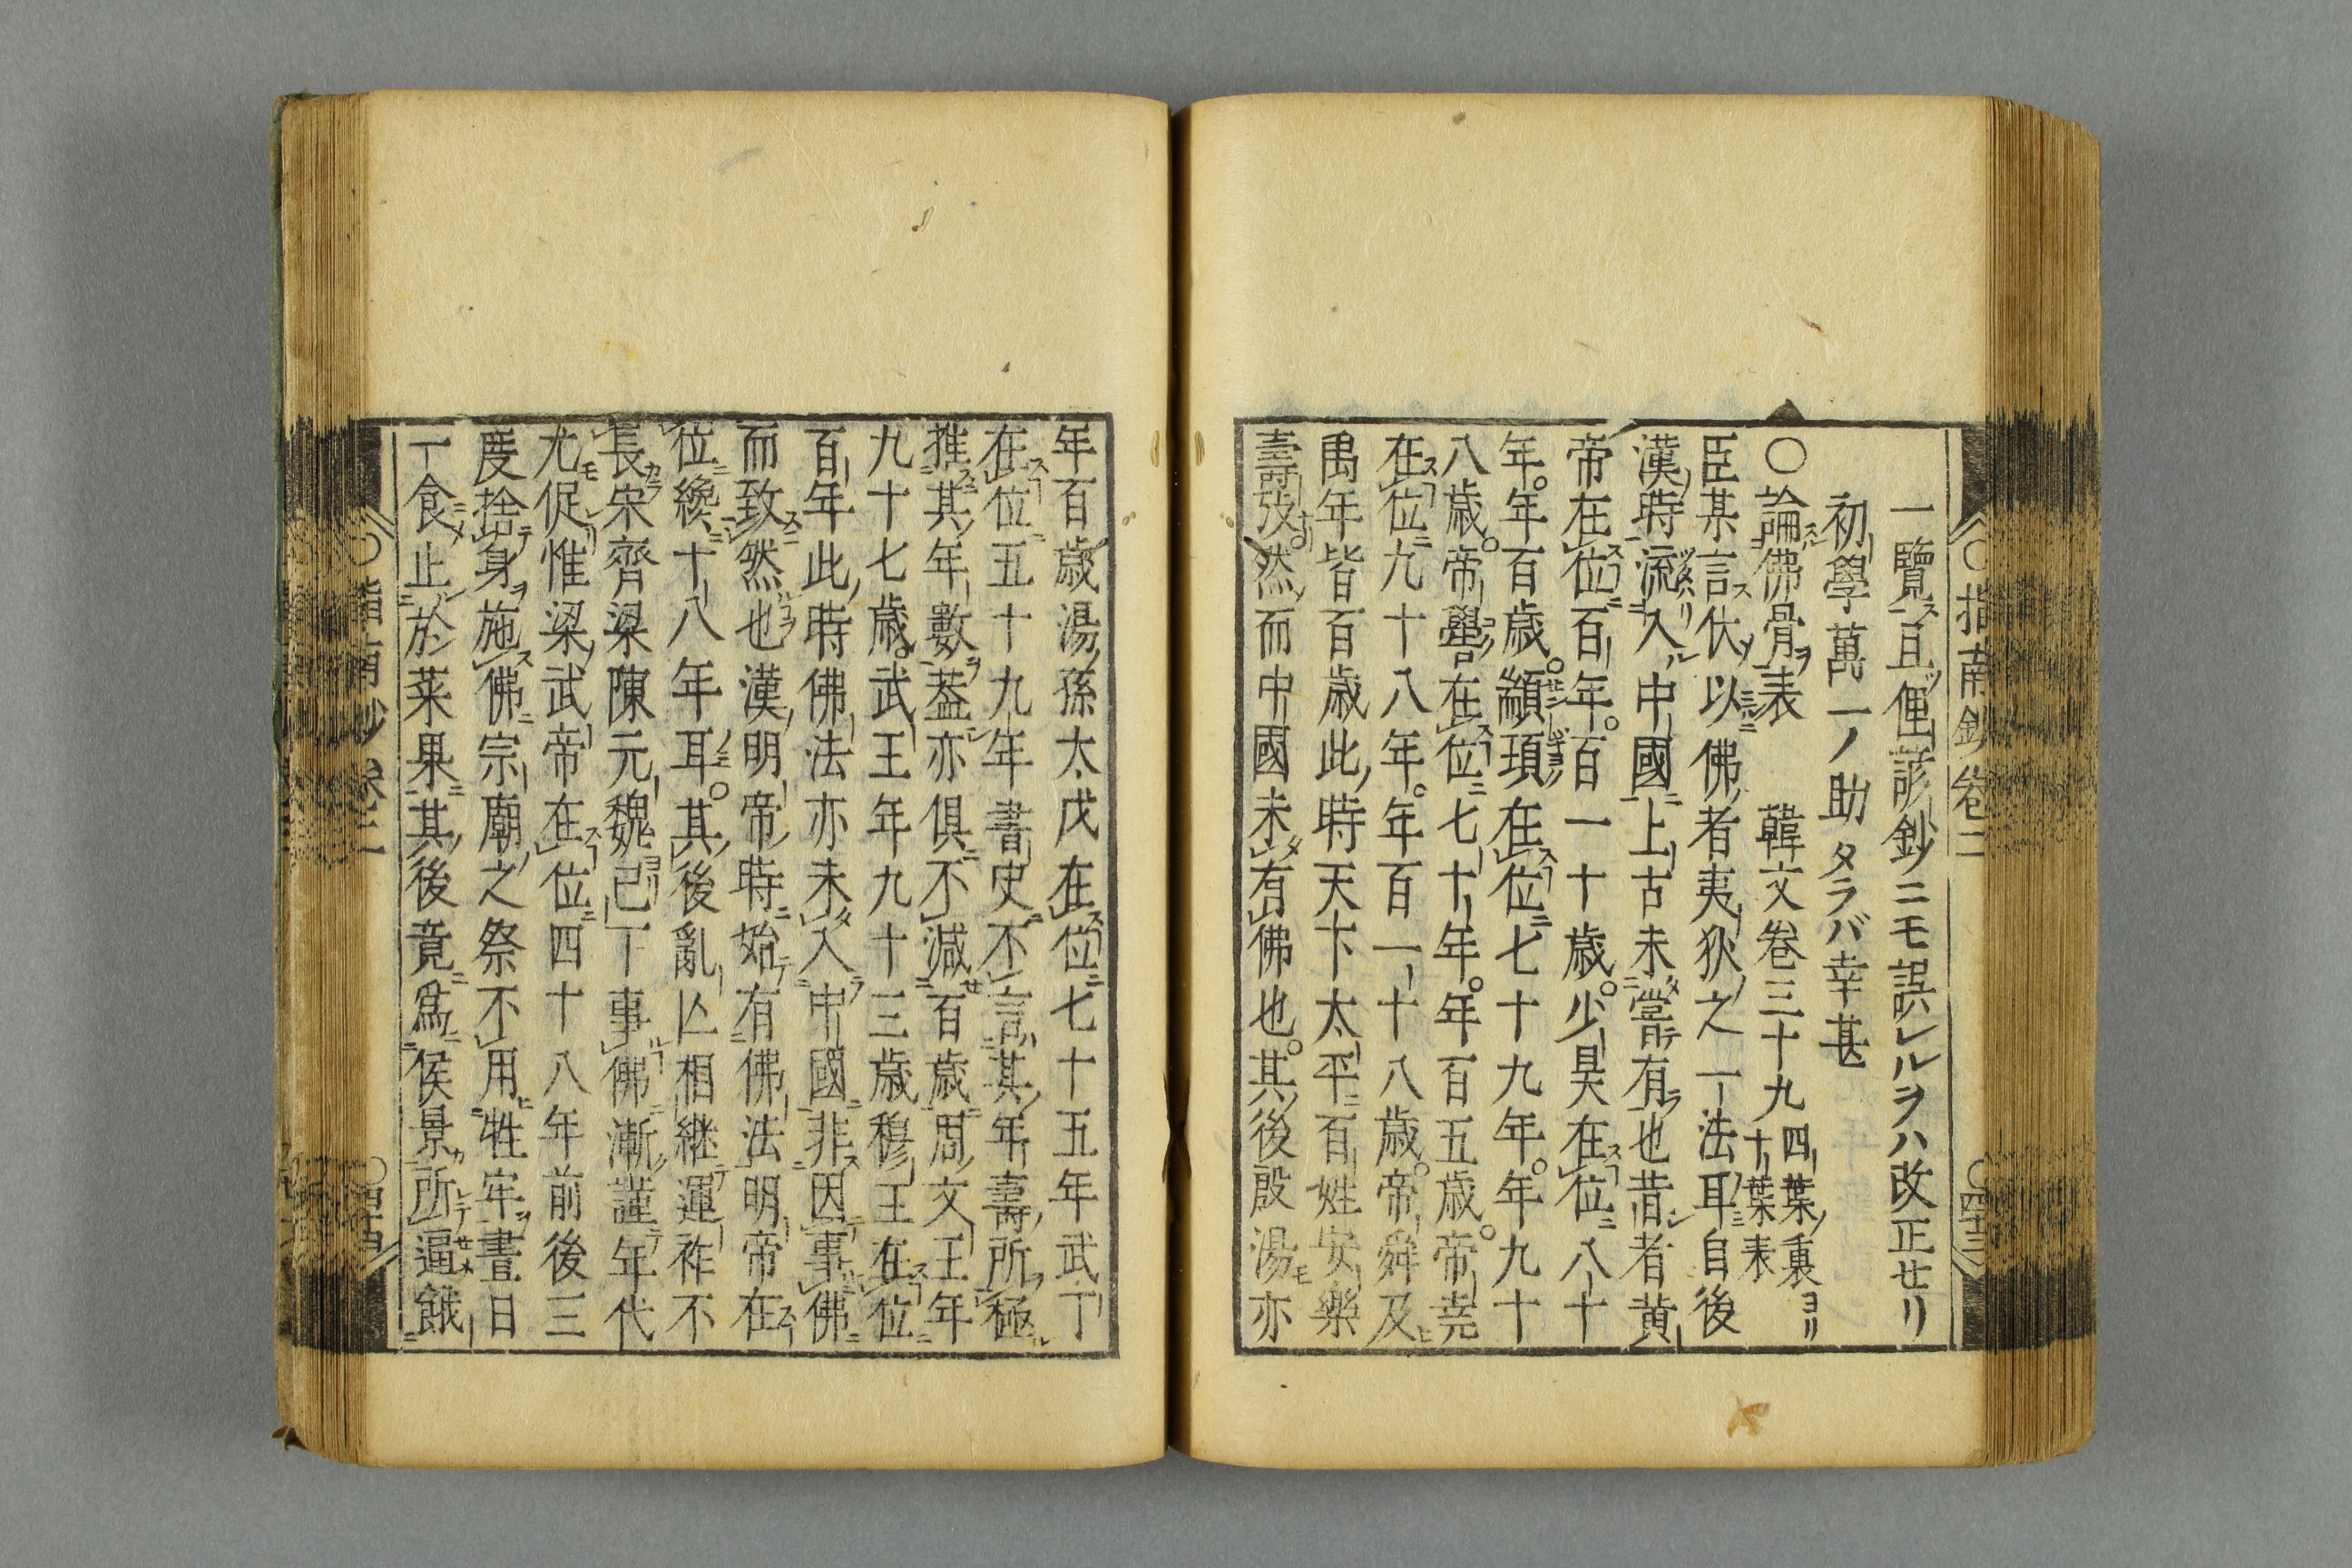 〇指南鈔卷二
〇四十三
一覽ス且ツ俚諺鈔ニモ誤レルヲハ改正セリ
初學萬一ノ助タラバ幸甚
〇論佛骨表 韓文卷三十九四葉裏ヨリ十葉表
臣某言伏以佛者夷狄之一法耳自後
漢時流入中國上古未嘗有也昔者黄
帝在位百年。百一十歳。少昊在位八十
年。年百歳。顓頊在位七十九年。年九十
八歳。帝嚳在位七十年。年百五歳。帝堯
在位九十八年。年百一十八歳。帝舜及
禹年皆百歳此時天下太平百姓安樂
壽考然而中國未有佛也。其後殷湯亦
年百歳湯孫太戊在位七十五年武丁
在位五十九年書史不言其年壽所極
推其年數蓋亦俱不減百歳周文王年
九十七歳。武王年九十三歳穆王在位
百年此時佛法亦未入中國非因事佛
而致然也漢明帝時始有佛法明帝在
位纔十八年耳。其後亂亾相継運祚不
長宋齊梁陳元魏已下事佛漸謹年代
尤促惟梁武帝在位四十八年前後三
度捨身施佛宗廟之祭不用牲牢晝日
一食止於菜果其後竟爲侯景所逼餓
〇指南鈔卷二